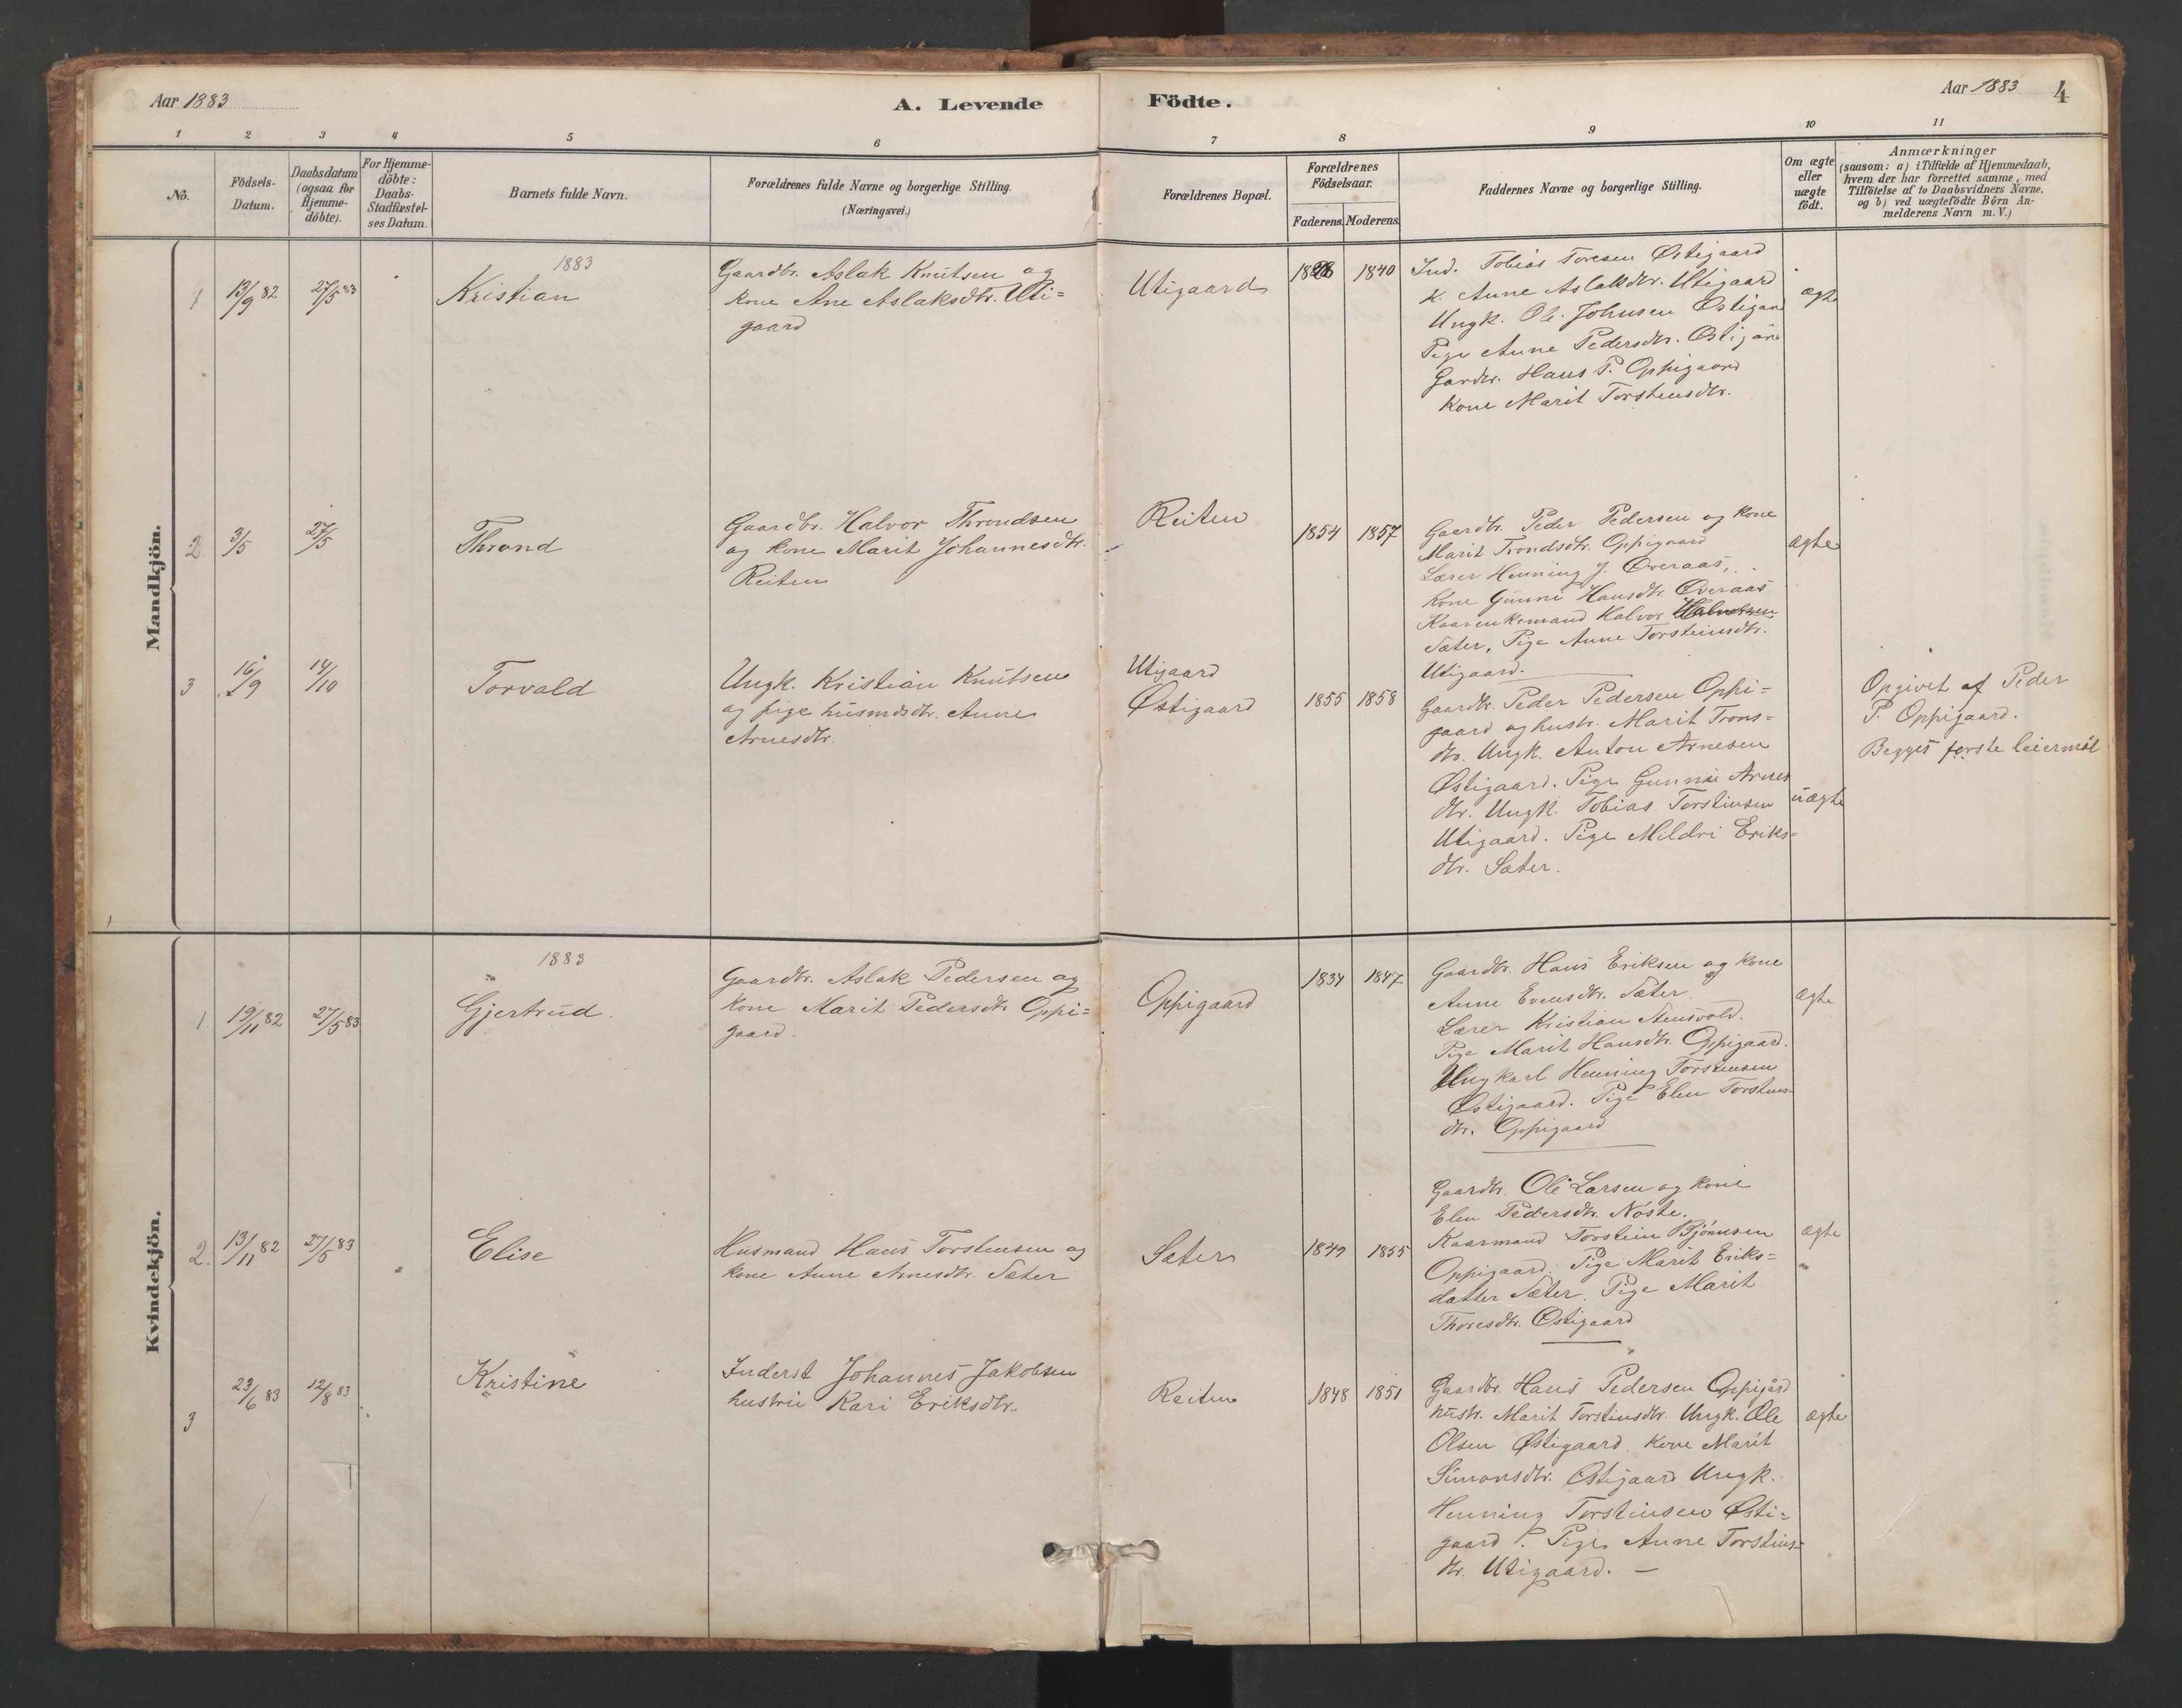 Aar 1883
A. Levende
Födte.
Aar 1883
4
1 2 3 4 5 6 7 8 9 10 11
No.
Födsels-
Datum.
Daabsdatum
(ogsaa for
Hjemme-
döbte).
For Hjemme-
döbte:
Daabs-
Stadfæstel-
ses Datum.
Barnets fulde Navn.
Forældrenes fulde Navne og borgerlige Stilling.
(Næringsvei.)
Forældrenes Bopæl.
Forældrenes
Födselsaar.
Faderens. Moderens.
Faddernes Navne og borgerlige Stilling.
Om ægte
eller
uægte
födt.
Anmærkninger
(saasom: a) i Tilfælde af Hjemmedaab,
hvem der har forrettet samme, med
Tilföielse af to Daabsvidners Navne,
og b) ved uægtefödte Börn An-
melderens Navn m. V.)
Mandkjön.
1883
1 13/9 82 27/5 83 Kristian
Gaardbr. Aslak Knutsen og
kone Ane Aslaksdtr. Uti=
gaard
Utigaard
1840
Ind. Tobias Toresen Østigaard
k. Anne Aslaksdtr. Utigaard
Ungk. Ole Johnsen Østigard
Pige Anne Pedersdtr. Østigår
Gardbr. Hans P. Oppigaard
Kone Marit Torstensdtr.
ægte
2 3/5 27/5 Thrond
Gaardbr. Halvor Throndsen
og kone Marit Johannesdtr.
Reiten
Reiten
1854 1857
Gaardbr. Peder Pedersen og kone
Marit Trondsdtr. Oppigaard
Lærer Henning J. Øveraas,
kone Gunni Hansdtr. Øveraas
Kaarenkemand Halvor Halvorsen
Sæter, Pige Anne Torsteinsdtr.
Utigaard.
ægte
3 16/9 14/10 Torvald
Ungk. Kristian Knutsen
og pige husmdsdtr. Anne
Arnesdtr.
Utigaard
Østigaard
1855 1858
Gaardbr. Peder Pedersen Oppi=
gaard og hustr. Marit Trons=
dtr. Ungk. Anton Arnesen
Østigaard. Pige Gunnie Arnes
dtr. Ungk. Tobias Torstinsen
Utigaard. Pige Mildri Eriks=
dtr. Sæter.
uægte
Opgivet af Peder
P. Oppigaard.
Begges første leiermål
Kvindekjön.
1883
1. 19/11 82 27/5 83 Gjertrud.
Gaardbr. Aslak Pedersen og
kone Marit Pedersdtr. Oppi=
gaard.
Oppigaard
1834 1847
Gaardbr. Hans Eriksen og kone
Anne Evensdtr. Sæter.
Lærer Kristian Stensvold.
Pige Marit Hansdtr. Oppigaard.
Ungkarl Henning Torstensen
Østigaard. Pige Elen Torstens
dtr. Oppigaard
ægte
2. 13/11 82 27/5 83 Elise
Husmand Hans Torstensen og
kone Anne Arnesdtr. Sæter
Sæter
1849 1855
Gaardbr. Ole Larsen og kone
Elen Pedersdtr. Nøste.
Kaarmand Torstein Bjørnsen
Oppigaard. Pige Marit Eriks=
datter Sæter. Pige Marit
Thoresdtr. Østigaard
ægte
3 23/6 83 12/8 83 Kristine
Inderst Johannes Jakobsen
hustru Kari Eriksdtr.
Reiten
1848 1851
Gaardbr. Hans Pedersen Oppigård
hustr. Marit Torstinsdtr. Ungk. Ole
Olsen Østigaard. Kone Marit
Simonsdtr. Østigaard Ungk.
Henning Torstinsen Østi=
gaard. Pige Anne Torstins=
dtr. Utigaard. —
ægte